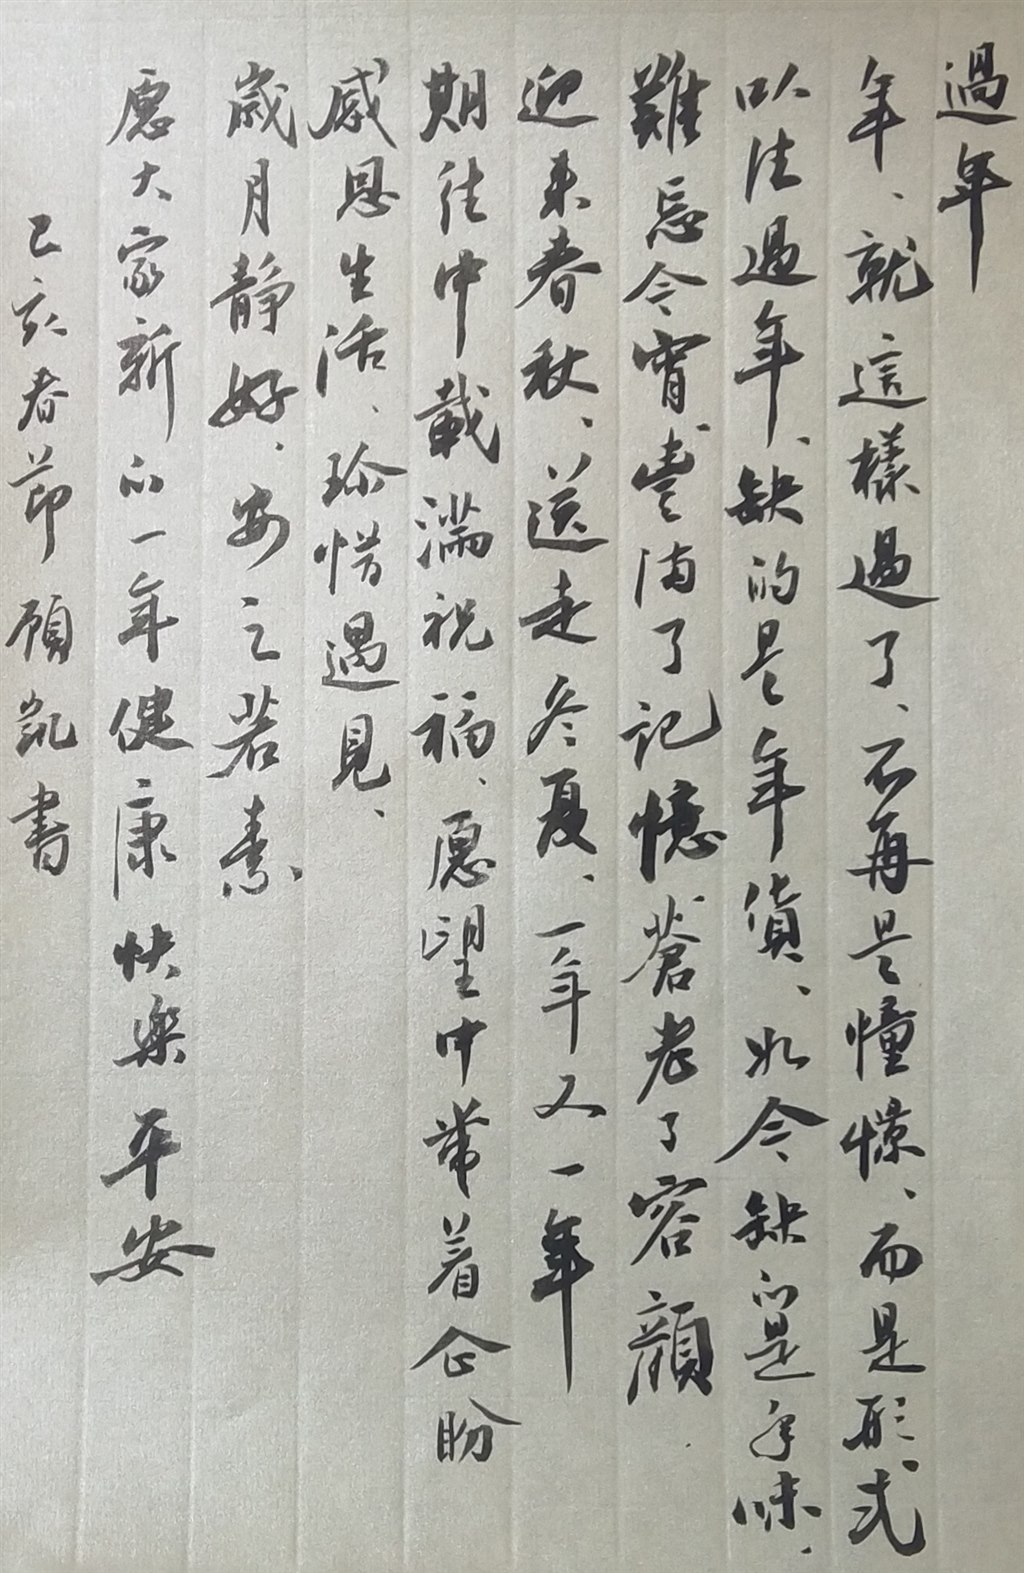 過年
年、就這樣過了、不再是憧憬、而是形式
以往過年、缺的是年貨、如今缺的是年味、
難忘今宵、豐滿了記憶、蒼老了容顏
迎来春秋、送走冬夏、一年又一年
期待中載滿祝福、愿望中带着企盼
感恩生活、珍惜遇見、
歲月靜好、安之若素
愿大家新的一年健康快樂平安
己亥春節顾凯書